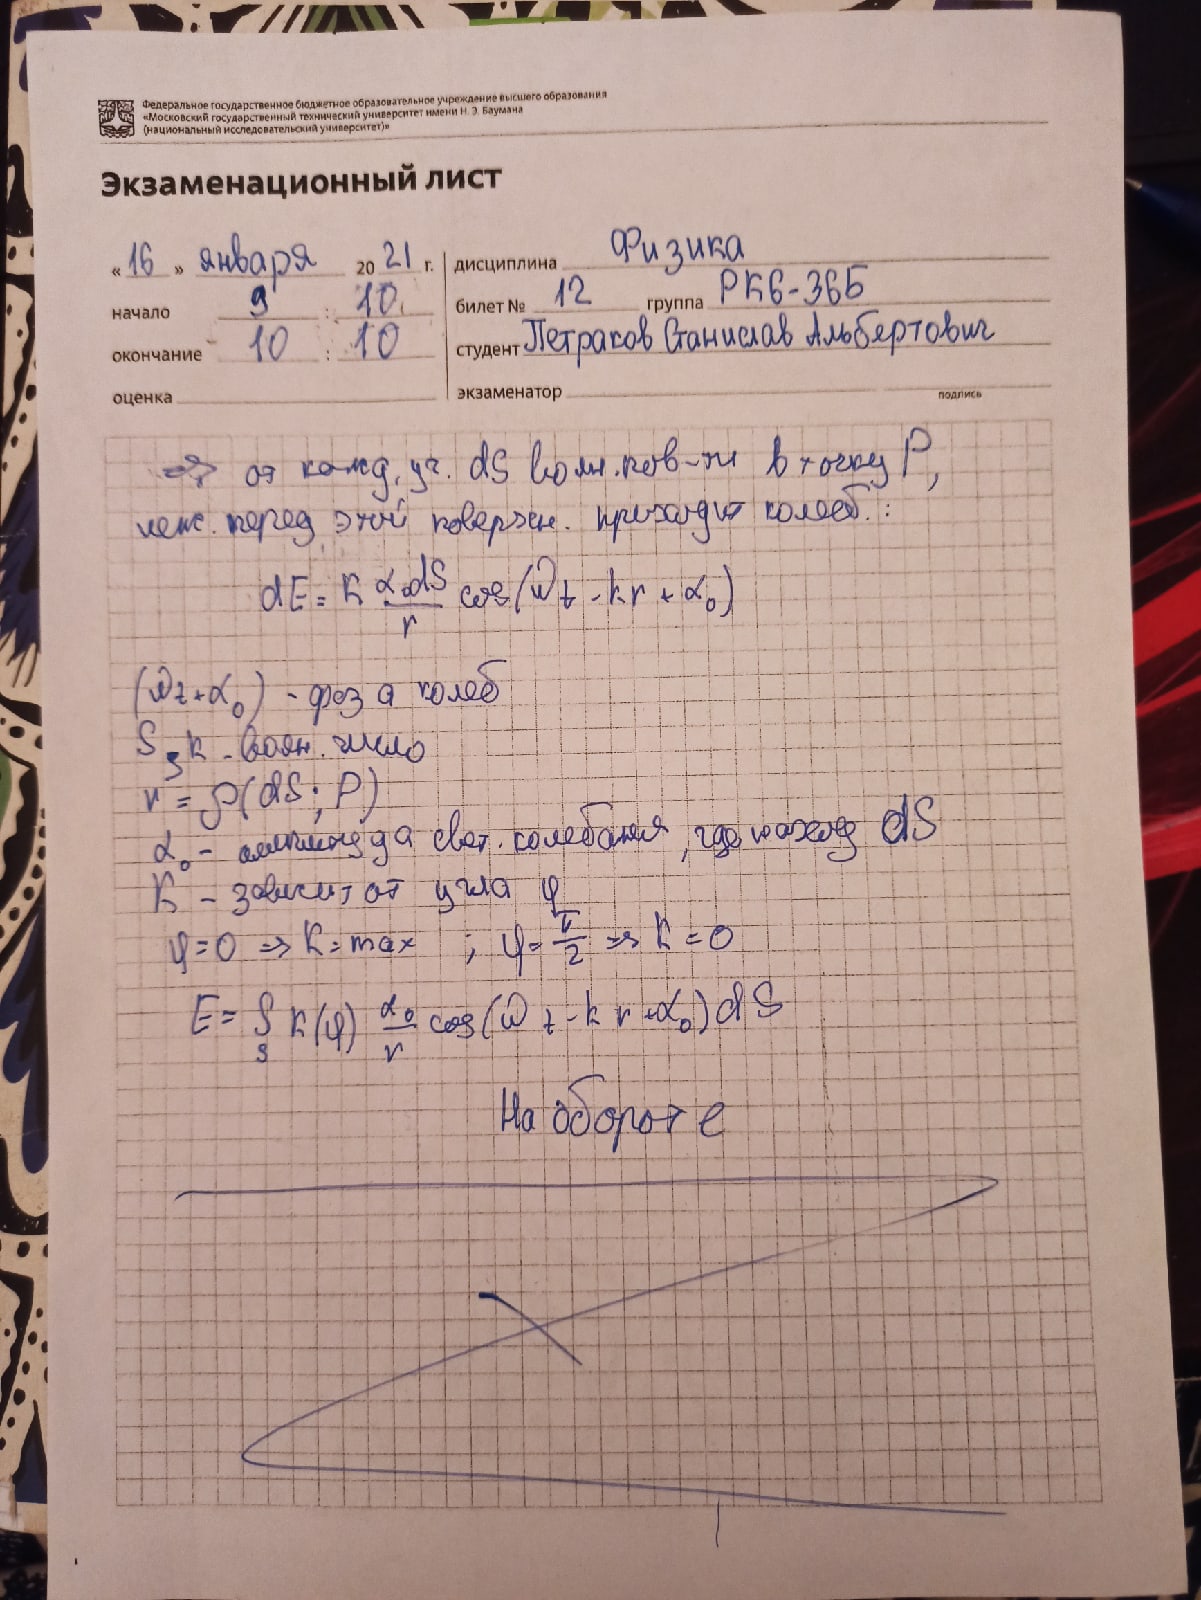 Федеральное государственное бюджетное образовательное учреждение высшего образования
«Московский государственный технический университет имени Н. Э. Баумана
(национальный исследовательский университет)»
Экзаменационный лист
« 16 » января 20 21 г.
дисциплина Физика
начало 9 : 10
билет № 12 группа РК6-36Б
окончание 10 : 10
студент Петраков Станислав Альбертович
оценка
экзаменатор
подпись
=> от кажд. уч. dS волн. пов-ти в точку P,
леж. перед этой поверхн. приходит колеб. :
dE = K α₀dS/r cos(ωt - kr + α₀)
(ωt + α₀) - фаза колеб
k - волн. число
r = ρ(dS; P)
α₀ - амплитуда свет. колебания, где наход dS
K - зависит от угла φ
φ = 0 => K = max ; φ = π/2 => K = 0
E = ∫s K(φ) α₀/r cos(ωt - kr + α₀) dS
На обороте